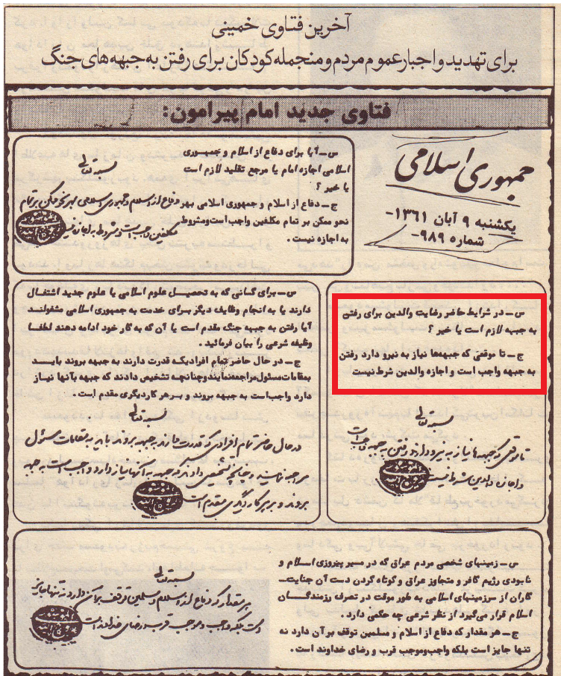 آخرین فتاوی خمینی
برای تهدید و اجبار عموم مردم و منجمله کودکان برای رفتن به جبهه‌های جنگ
فتاوی جدید امام پیرامون:
جمهوری اسلامی
یکشنبه ۹ آبان ۱۳۶۱-
شماره ۹۸۹-
س ـ آیا برای دفاع از اسلام و جمهوری
اسلامی اجازه امام یا مرجع تقلید لازم است
یا خیر ؟
ج ـ دفاع از اسلام و جمهوری اسلامی بهر
نحو ممکن بر تمام مکلفین واجب است و مشروط
به اجازه نیست .
بسمه تعالی
دفاع از اسلام و جمهوری اسلامی بهر نحو ممکن بر تمام
مکلفین واجب است و مشروط به اجازه نیست
س ـ در شرایط حاضر رضایت والدین برای رفتن
به جبهه لازم است یا خیر ؟
ج ـ تا موقعی که جبهه‌ها نیاز به نیرو دارد رفتن
به جبهه واجب است و اجازه والدین شرط نیست
بسمه تعالی
تا موقعی که جبهه‌ها نیاز به نیرو دارد رفتن به جبهه واجب است
و اجازه والدین شرط نیست
س ـ برای کسانی که به تحصیل علوم اسلامی یا علوم جدید اشتغال
دارند یا به انجام وظایف دیگر برای خدمت به جمهوری اسلامی مشغولند
آیا رفتن به جبهه جنگ مقدم است یا آن که به کار خود ادامه دهند لطفا
وظیفه شرعی را بیان فرمائید .
ج ـ در حال حاضر تمام افرادیکه قدرت دارند به جبهه بروند باید
بمقامات مسئول مراجعه نمایند و چنانچه تشخیص دادند که جبهه به آنها نیاز
دارد واجب است به جبهه بروند و بر هر کار دیگری مقدم است .
بسمه تعالی
در حال حاضر تمام افرادی که قدرت دارند به جبهه بروند باید به مقامات مسئول
مراجعه نمایند و چنانچه تشخیص دادند که جبهه به آنها نیاز دارد واجب است به جبهه
بروند و بر هر کار دیگری مقدم است
س ـ زمینهای شخصی مردم عراق که در مسیر پیروزی اسلام و
نابودی رژیم کافر و متجاوز عراق و کوتاه کردن دست آن جنایت-
کاران از سرزمینهای اسلامی به طور موقت در تصرف رزمندگان
اسلام قرار می‌گیرد از نظر شرعی چه حکمی دارد .
ج ـ هر مقدار که دفاع از اسلام و مسلمین توقف بر آن دارد نه
تنها جایز است بلکه واجب و موجب قرب و رضای خداوند است .
بسمه تعالی
هر مقدار که دفاع از اسلام و مسلمین توقف بر آن دارد نه تنها جایز
است بلکه واجب و موجب قرب و رضای خداوند است